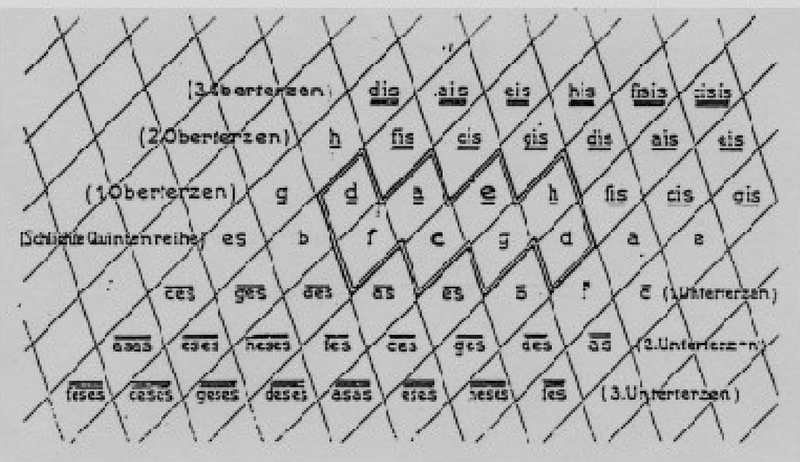 (3.Oberterzen) dis ais eis his fisis cisis
(2.Oberterzen) h fis cis gis dis ais eis
(1.Oberterzen) g d a e h fis cis gis
[Schlichte Quintenreihe] es b f c g d a e
ces ges des as es b f c (1.Unterterzen)
asas eses heses fes ces ges des as (2.Unterterzen)
feses ceses geses deses asas eses heses fes (3.Unterterzen)